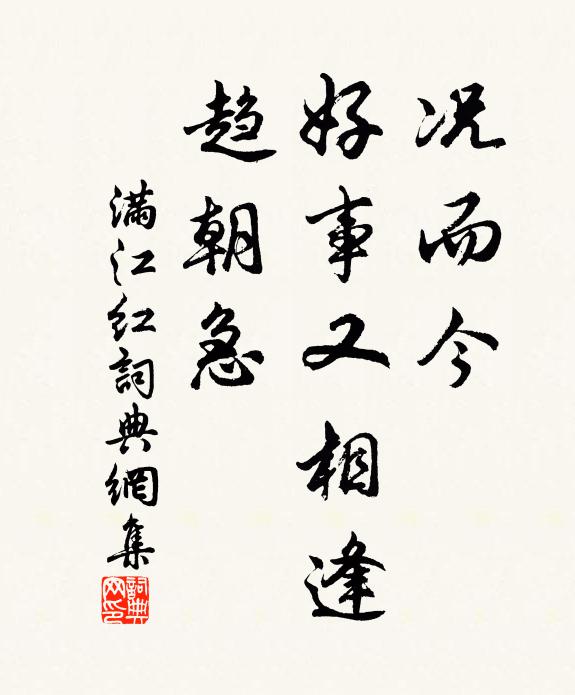 况而今
好事又相逢
趋朝急
满江红词典网集
詞典
网印